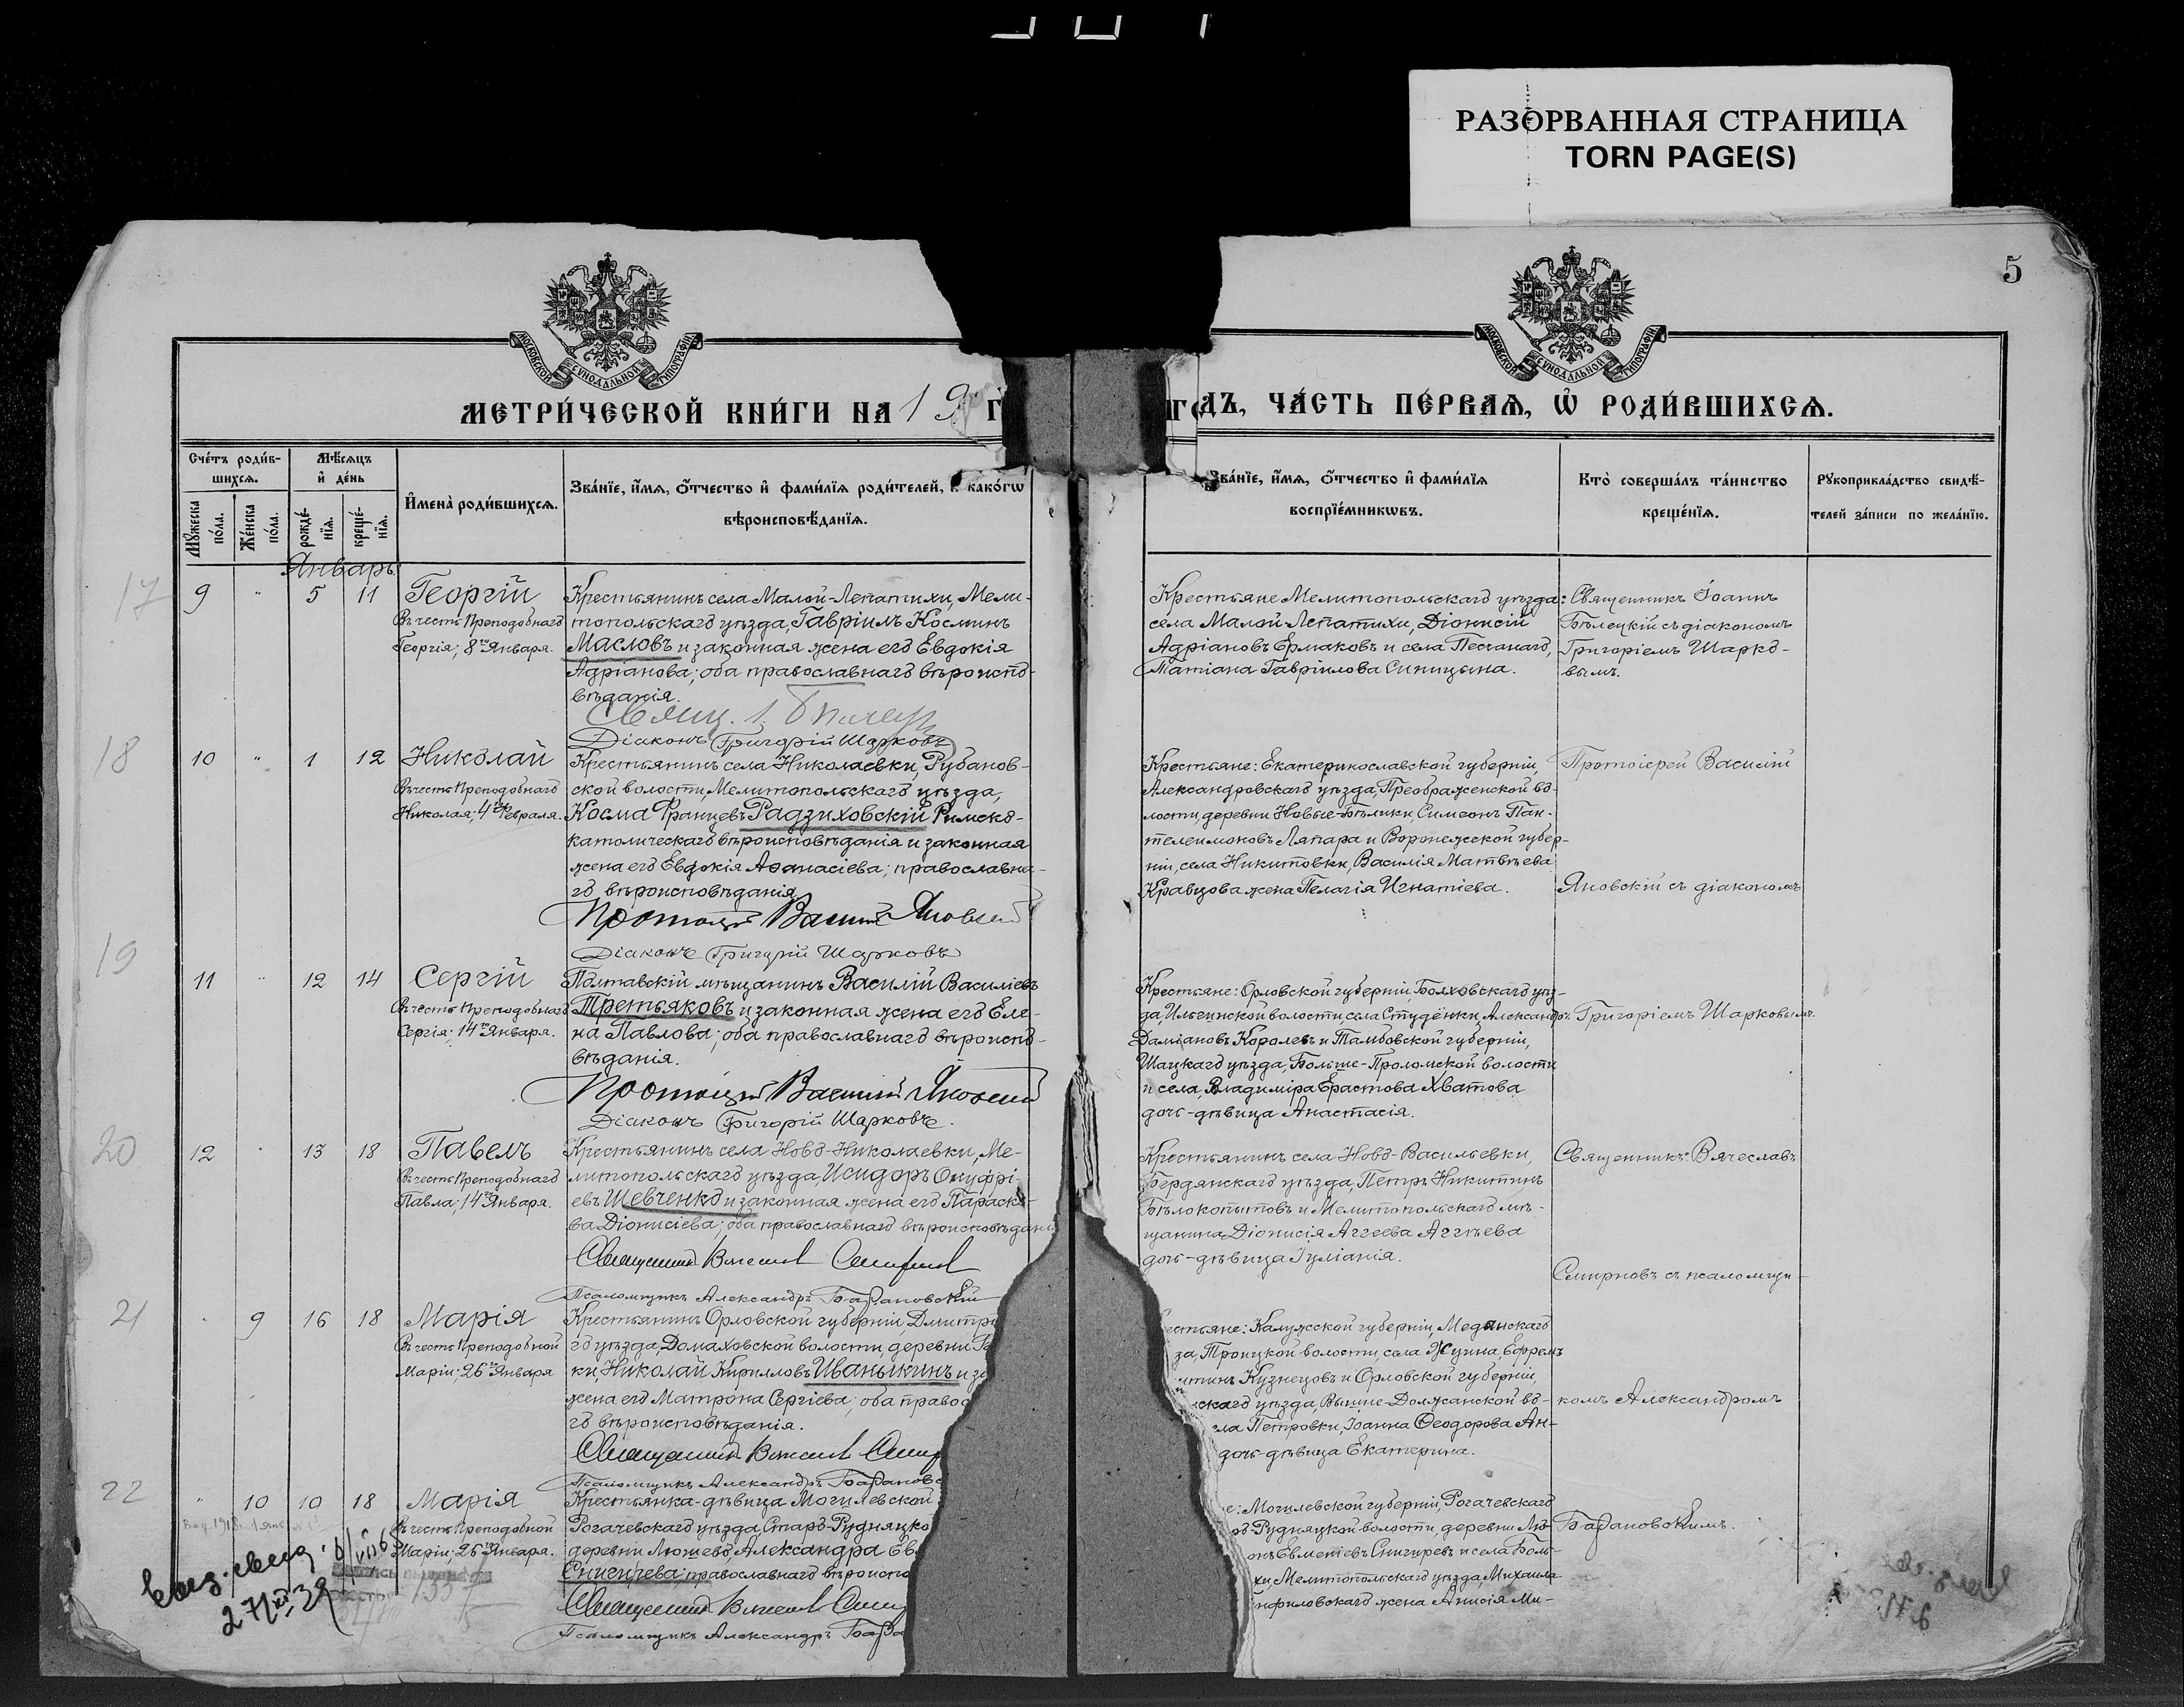 РАЗОРВАННАЯ СТРАНИЦА
TORN PAGE(S)
5
МОСКОВСКОЙ СУНОДАЛЬНОЙ ТИПОГРАФІИ
МОСКОВСКОЙ СУНОДАЛЬНОЙ ТИПОГРАФІИ
МЕТРИ́ЧЕСКОЙ КНИ́ГИ НА 19
ДЪ, ЧА́СТЬ ПЕ́РВАѦ, Ѡ҆ РОДИ́ВШИХСѦ.
Сче́тъ роди́в-
шихсѧ.
Мꙋ́жеска по́ла.
Же́нска по́ла.
Мѣ́сѧцъ
и҆ де́нь
рожде́-
нїѧ.
креще́-
нїѧ.
И҆мена̀ роди́вшихсѧ.
Зва́нїе, и҆́мѧ, ѻ҆́тчество и҆ фами́лїѧ роди́телей, и҆ како́гѡ
вѣроисповѣ́данїѧ.
Зва́нїе, и҆́мѧ, ѻ҆́тчество и҆ фами́лїѧ
воспрїе́мникѡвъ.
Кто̀ соверша́лъ та́инство
креще́нїѧ.
Рꙋкоприкла́дство свидѣ́-
телей за́писи по жела́нїю.
Январь.
17
9 " 5 11
Георгій
Въ честь Преподобнаго
Георгія; 8го Января.
Крестьянинъ села Малой-Лепатихи, Мели-
топольскаго уѣзда, Гавріилъ Косминъ
Масловъ и законная жена его Евдокія
Адріанова; оба православнаго вѣроиспо-
вѣданія.
Діаконъ Григорій Шарковъ
Крестьяне Мелитопольскаго уѣзда:
села Малой Лепатихи, Діонисій
Адріановъ Ермаковъ и села Песчанаго,
Татіана Гавріилова Синицына.
Священникъ Іоаннъ
Бѣлецкій съ діакономъ
Григоріемъ Шарко-
вымъ.
18
10 " 1 12
Николай
Въ честь Преподобнаго
Николая; 4го Февраля.
Крестьянинъ села Николаевки, Рубанов-
ской волости, Мелитопольскаго уѣзда,
Косма Францевъ Радзиховскій Римско-
католическаго вѣроисповѣданія и законная
жена его Евдокія Аѳанасіева; православна-
го вѣроисповѣданія.
Протоіерей Василій Яновскій
Діаконъ Григорій Шарковъ
Крестьяне: Екатеринославской губерніи,
Александровскаго уѣзда, Преображенской во-
лости, деревни Новые-Бѣлики, Симеонъ Пан-
телеимоновъ Ляпара и Воронежской губер-
ніи, села Никитовки, Василія Матвѣева
Кравцова жена Пелагія Игнатіева.
Протоіерей Василій
Яновскій съ діакономъ
19
11 " 12 14
Сергій
Въ честь Преподобнаго
Сергія; 14го Января.
Полтавскій мѣщанинъ Василій Василіевъ
Третьяковъ и законная жена его Еле-
на Павлова; оба православнаго вѣроиспо-
вѣданія.
Протоіерей Василій Яновскій
Діаконъ Григорій Шарковъ.
Крестьяне: Орловской губерніи, Болховскаго уѣз-
да, Ильинской волости, села Студенки, Александръ
Даміановъ Королевъ и Тамбовской губерніи,
Шацкаго уѣзда, Больше-Проломской волости
и села, Владиміра Ерастова Хватова
дочь-дѣвица Анастасія.
Григоріемъ Шарковымъ.
20
12 " 13 18
Павелъ
Въ честь Преподобнаго
Павла; 14го Января.
Крестьянинъ села Ново-Николаевки, Ме-
литопольскаго уѣзда, Исидоръ Онуфрі-
евъ Шевченко и законная жена его Параске-
ва Діонисіева; оба православнаго вѣроисповѣдані
Священникъ Вячеславъ Смирновъ
Псаломщикъ Александръ Барановскій
Крестьянинъ села Ново-Васильевки,
Бердянскаго уѣзда, Петръ Никитинъ
Бѣлокопытовъ и Мелитопольскаго мѣ-
щанина Діонисія Аггеева Аггѣева
дочь-дѣвица Іуліанія.
Священникъ Вячеславъ
Смирновъ съ псаломщи-
21
" 9 16 18
Марія
Въ честь Преподобной
Маріи; 26го Января
Крестьянинъ Орловской губерніи, Дмитрі
го уѣзда, Домаховской волости, деревни
ки, Николай Кирилловъ Иванькинъ и за
жена его Матрона Сергіева; оба правос
го вѣроисповѣданія.
Священникъ Вячеславъ Смир
Псаломщикъ Александръ Барановс
естьяне: Калужской губерніи, Медынскаго
за, Троицкой волости, села Жуина, Ефремъ
итинъ Кузнецовъ и Орловской губерніи,
скаго уѣзда, Вышне-Должанской во-
ла Петровки, Іоанна Ѳеодорова Ан-
дочь-дѣвица Екатерина.
комъ Александромъ
22
" 10 10 18
Марія
Въ честь Преподобной
Маріи; 26го Января.
Крестьянка-дѣвица Могилевской
Рогачевскаго уѣзда, Старо-Рудняцко
деревни Люшево, Александра Ев
Снигирева; православнаго вѣроиспо
Священникъ Вячеславъ Смир
Псаломщикъ Александръ Бара
е: Могилевской губерніи, Рогачевскаго
ро-Рудняцкой волости, деревни Лю-
онъ Евменіевъ Снигиревъ и села Боль-
хи, Мелитопольскаго уѣзда, Михаила
нфиловскаго жена Анисія Ми-
Барановскимъ.